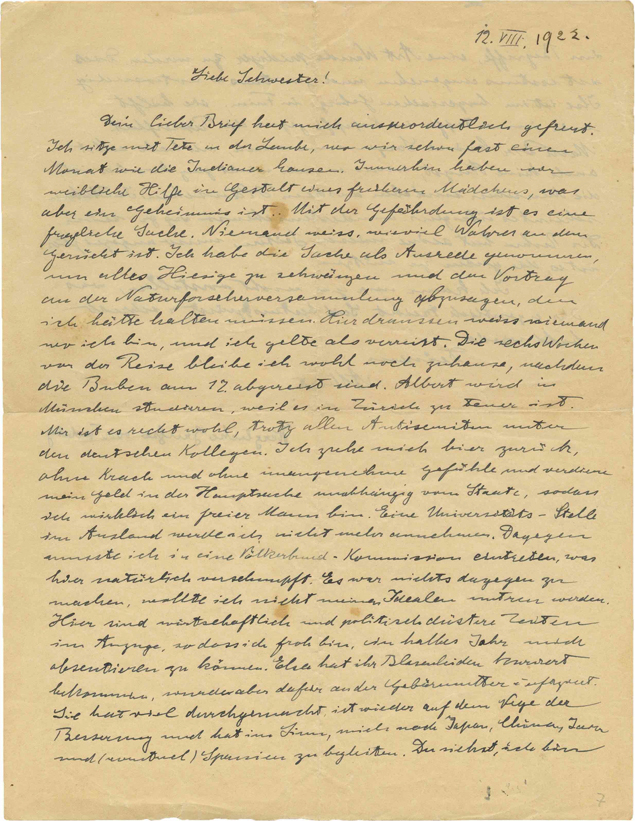 12. VIII. 1922.
Liebe Schwester!
Dein lieber Brief hat mich ausserordentlich gefreut.
Ich sitze mit Tete in der Laube, wo wir schon fast einen
Monat wie die Indianer hausen. Immerhin haben wir
weibliche Hilfe in Gestalt eines früheren Mädchens, was
aber ein Geheimnis ist. Mit der Gefährdung ist es eine
fragliche Sache. Niemand weiss, wieviel Wahres an dem
Gerücht ist. Ich habe die Sache als Ausrede genommen,
um alles Hiesige zu schwänzen und den Vortrag
an der Naturforscherversammlung abzusagen, den
ich hätte halten müssen. Hier draussen weiss niemand
wo ich bin, und ich gelte als verreist. Die sechs Wochen
vor der Reise bleibe ich wohl noch zuhause, nachdem
die Buben am 17. abgereist sind. Albert wird in
München studieren, weil es in Zürich zu teuer ist.
Mir ist es recht wohl, trotz allen Antisemiten unter
den deutschen Kollegen. Ich ziehe mich hier zurück,
ohne Krach und ohne unangenehme Gefühle, und verdiene
mein Geld in der Hauptsache unabhängig vom Staate, sodass
ich wirklich ein freier Mann bin. Eine Universitäts-Stelle
im Ausland werde ich nicht mehr annehmen. Dagegen
musste ich in eine Völkerbund-Kommission eintreten, was
hier natürlich verschnupft. Es war nichts dagegen zu
machen, wollte ich nicht meinen Idealen untreu werden.
Hier sind wirtschaftlich und politisch düstere Zeiten
im Anzuge, sodass ich froh bin, ein halbes Jahr mich
absentieren zu können. Elsa hat ihr Blasenleiden kuriert
bekommen, wurde aber dafür an der Gebärmutter infiziert.
Sie hat viel durchgemacht, ist wieder auf dem Wege der
Besserung und hat im Sinn, mich nach Japan, China, Java
und (eventuel) Spanien zu begleiten. Du siehst, ich bin
7